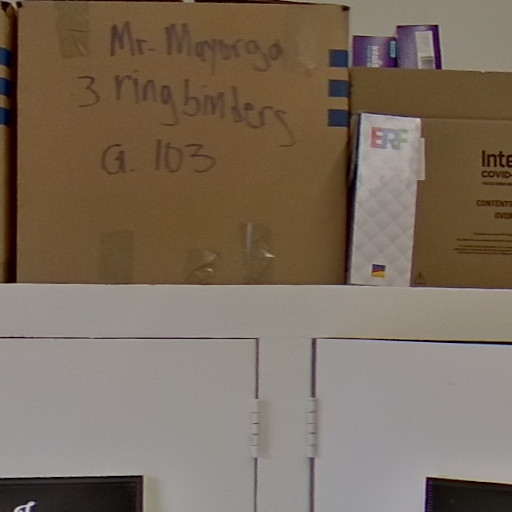 Mr. Mayorga
3 ring binders
G. 103
ERF
Inte
COVID-
CONTENTS
OVER